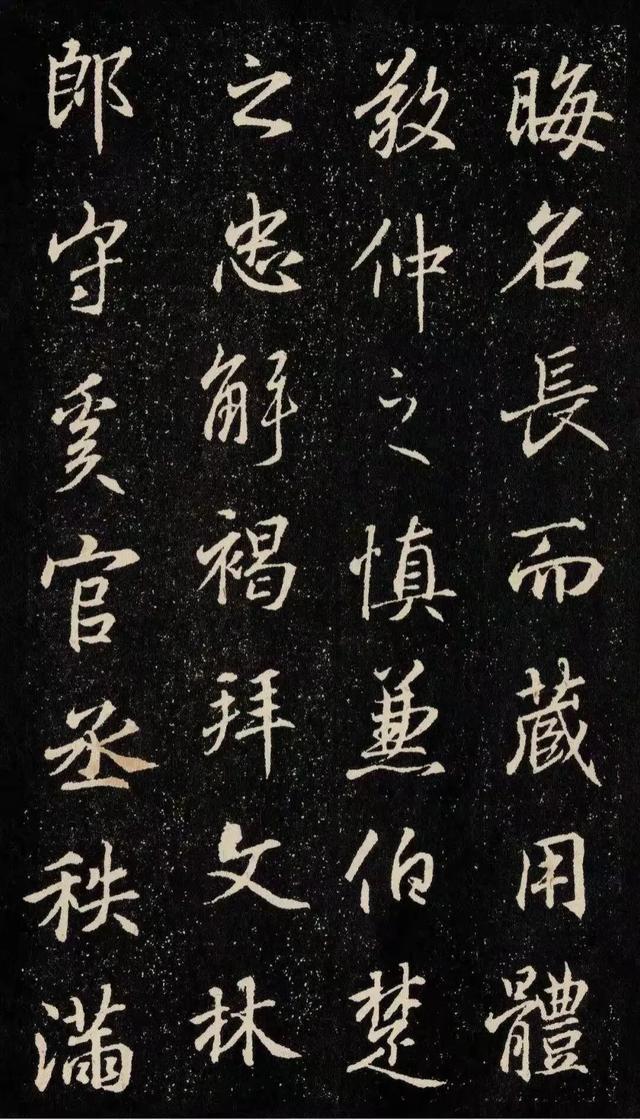 晦名長而藏用體
敬仲之慎兼伯楚
之忠解褐拜文林
郎守奚官丞秩滿